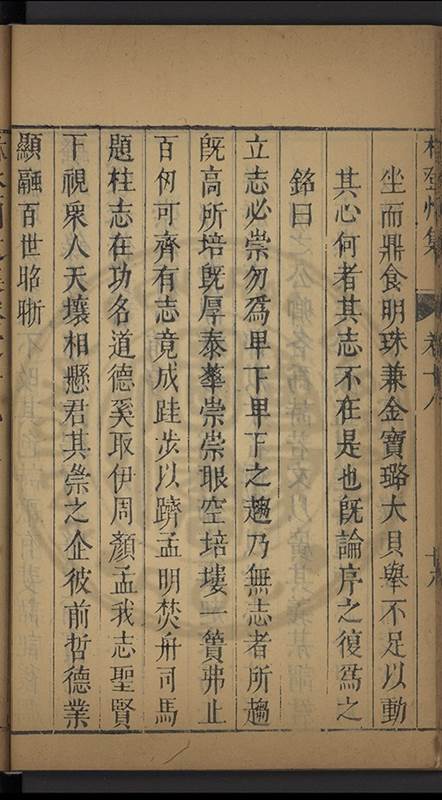 坐而鼎食明珠兼金寶璐大貝舉不足以動
其心何者其志不在是也旣論序之復爲之
銘曰
立志必崇勿爲卑下卑下之趨乃無志者所趨
旣高所培旣厚泰華崇崇眼空培塿一簣弗止
百仞可齊有志竟成跬步以躋孟明焚舟司馬
題柱志在功名道德奚取伊周顏孟我志聖賢
下視衆人天壤相懸君其崇之企彼前哲德業
顯融百世昭晰